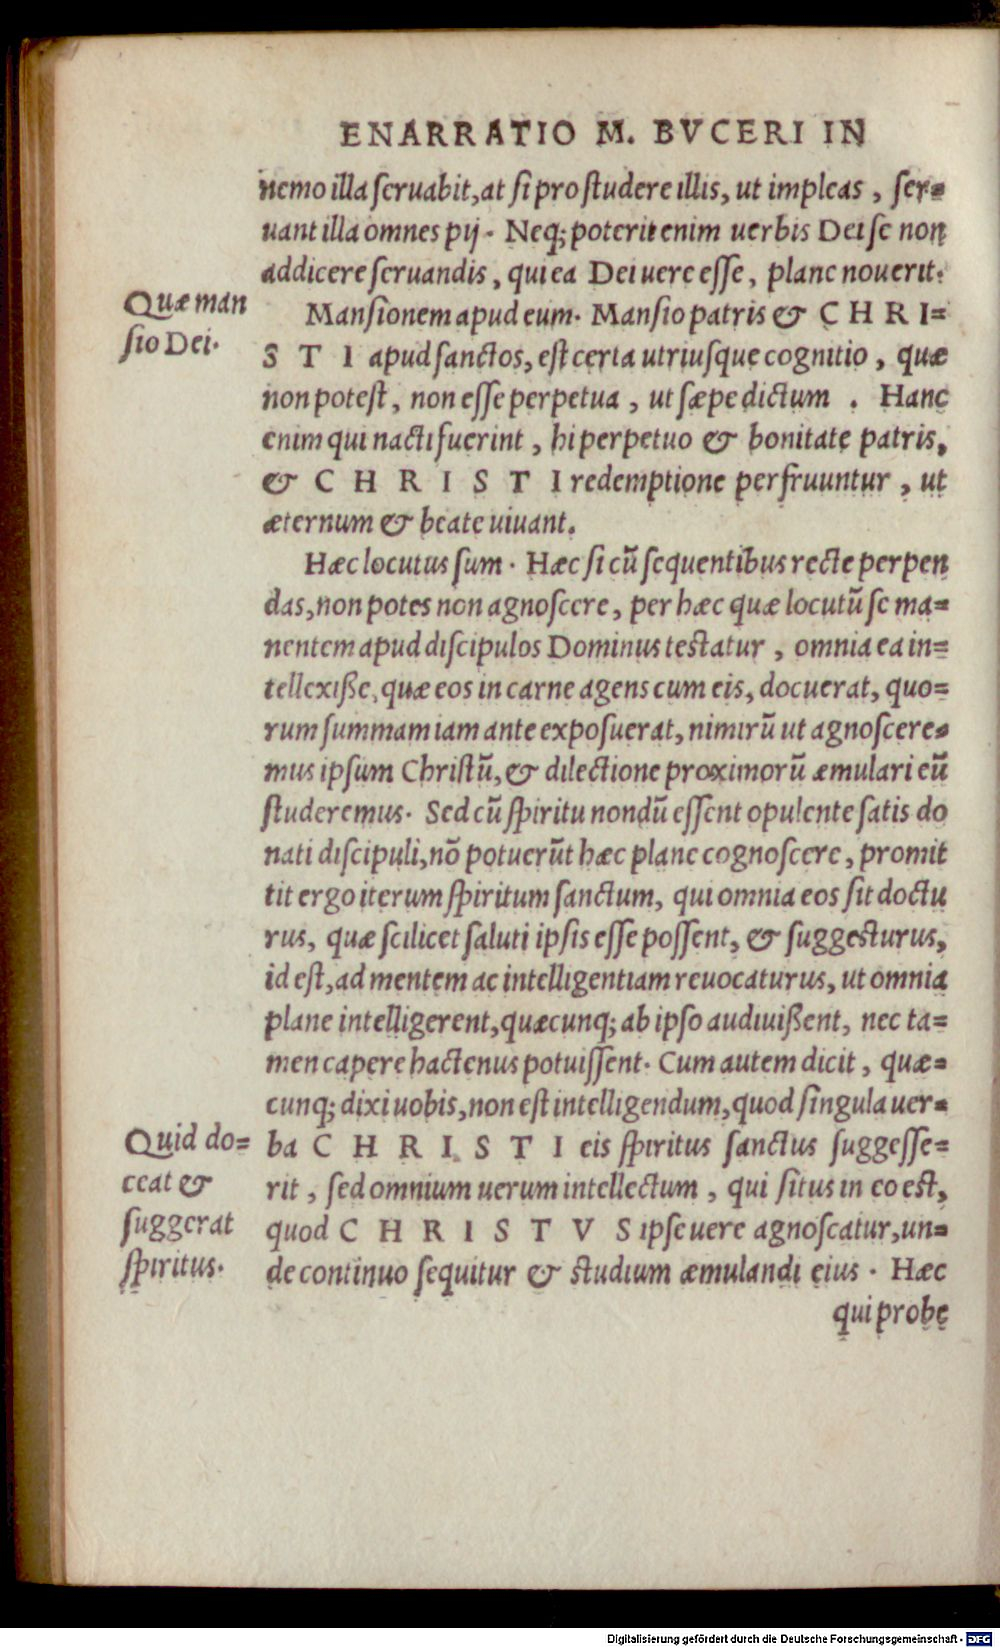 ENARRATIO M. BVCERI IN
nemo illa ſeruabit, at ſi pro ſtudere illis, ut impleas, ſer=
uant illa omnes pij. Neq; poterit enim uerbis Dei ſe non
addicere ſeruandis, qui ea Dei uere eſſe, plane nouerit.
Quæ man
ſio Dei.
Manſionem apud eum. Manſio patris & CHRI=
STI apud ſanctos, eſt certa utriuſque cognitio, quæ
non poteſt, non eſſe perpetua, ut ſæpe dictum. Hanc
enim qui nacti fuerint, hi perpetuo & bonitate patris,
& CHRISTI redemptione perfruuntur, ut
æternum & beate uiuant.
Hæc locutus ſum. Hæc ſi cū ſequentibus recte perpen
das, non potes non agnoſcere, per hæc quæ locutū ſe ma=
nentem apud diſcipulos Dominus teſtatur, omnia ea in=
tellexiße, quæ eos in carne agens cum eis, docuerat, quo=
rum ſummam iam ante expoſuerat, nimirū ut agnoſcere=
mus ipſum Chriſtū, & dilectione proximorū æmulari eū
ſtuderemus. Sed cū ſpiritu nondū eſſent opulente ſatis do
nati diſcipuli, nō potuerūt hæc plane cognoſcere, promit
tit ergo iterum ſpiritum ſanctum, qui omnia eos ſit doctu
rus, quæ ſcilicet ſaluti ipſis eſſe poſſent, & ſuggeſturus,
id eſt, ad mentem ac intelligentiam reuocaturus, ut omnia
plane intelligerent, quæcunq; ab ipſo audiuißent, nec ta=
men capere hactenus potuiſſent. Cum autem dicit, quæ=
cunq; dixi uobis, non eſt intelligendum, quod ſingula uer=
Quid do=
ceat &
ſuggerat
ſpiritus.
ba CHRISTI eis ſpiritus ſanctus ſuggeſſe=
rit, ſed omnium uerum intellectum, qui ſitus in eo eſt,
quod CHRISTVS ipſe uere agnoſcatur, un=
de continuo ſequitur & ſtudium æmulandi eius. Hæc
qui probe
Digitalisierung gefördert durch die Deutsche Forschungsgemeinschaft - DFG